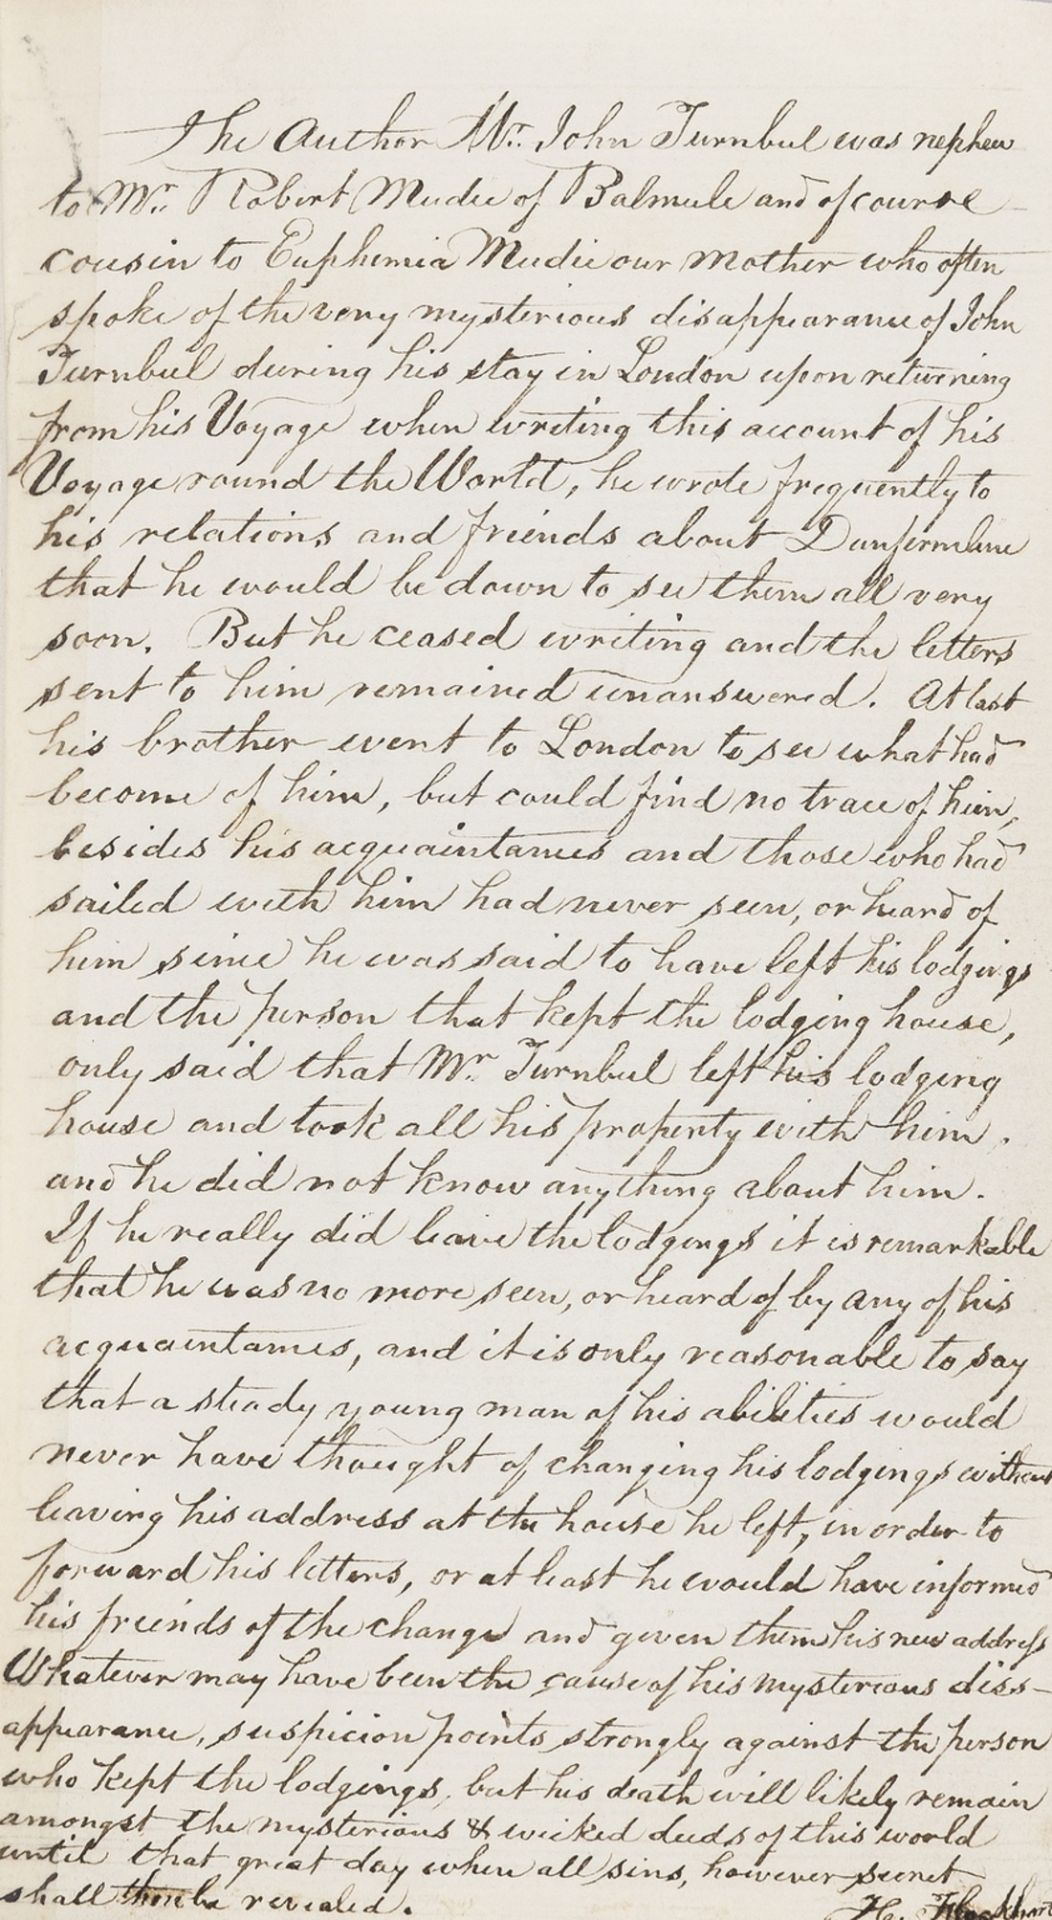 The Author Mr. John Turnbul was nephew
to Mr. Robert Mudie of Balmule and of course
cousin to Euphemia Mudie our mother who often
spoke of the very mysterious disappearance of John
Turnbul during his stay in London upon returning
from his Voyage when writing this account of his
Voyage round the World, he wrote frequently to
his relations and friends about Dunfermline
that he would be down to see them all very
soon. But he ceased writing and the letters
sent to him remained unanswered. At last
his brother went to London to see what had
become of him, but could find no trace of him,
besides his acquaintances and those who had
sailed with him had never seen, or heard of
him since he was said to have left his lodgings
and the person that kept the lodging house,
only said that Mr. Turnbul left his lodging
house and took all his property with him.
and he did not know any thing about him.
If he really did leave the lodgings it is remarkable
that he was no more seen, or heard of by any of his
acquaintances, and it is only reasonable to say
that a steady young man of his abilities would
never have thought of changing his lodgings without
leaving his address at the house he left, in order to
forward his letters, or at least he would have informed
his freinds of the change and given them his new address
Whatever may have been the cause of his mysterious diss-
appearance, suspicion points strongly against the person
who kept the lodgings, but his death will likely remain
amongst the mysterious & wicked deeds of this world
until that great day when all sins, however secret
shall then be revealed.
H. Flockhart